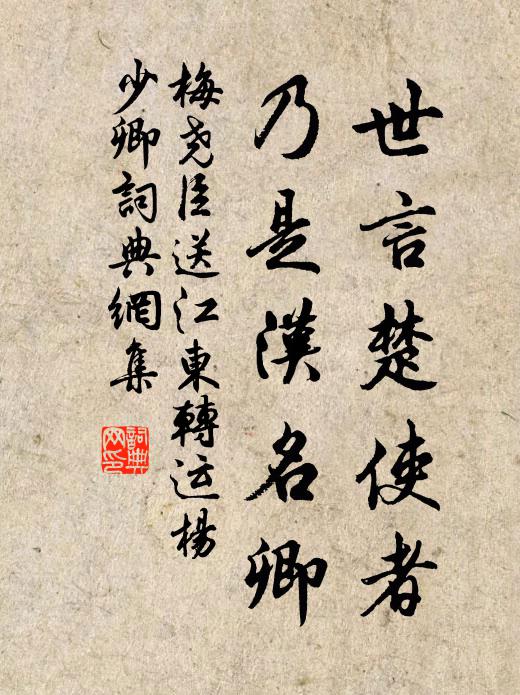 世言楚使者
乃是漢名卿
梅堯臣送江東轉运楊
少卿詞典網集
詞典网印